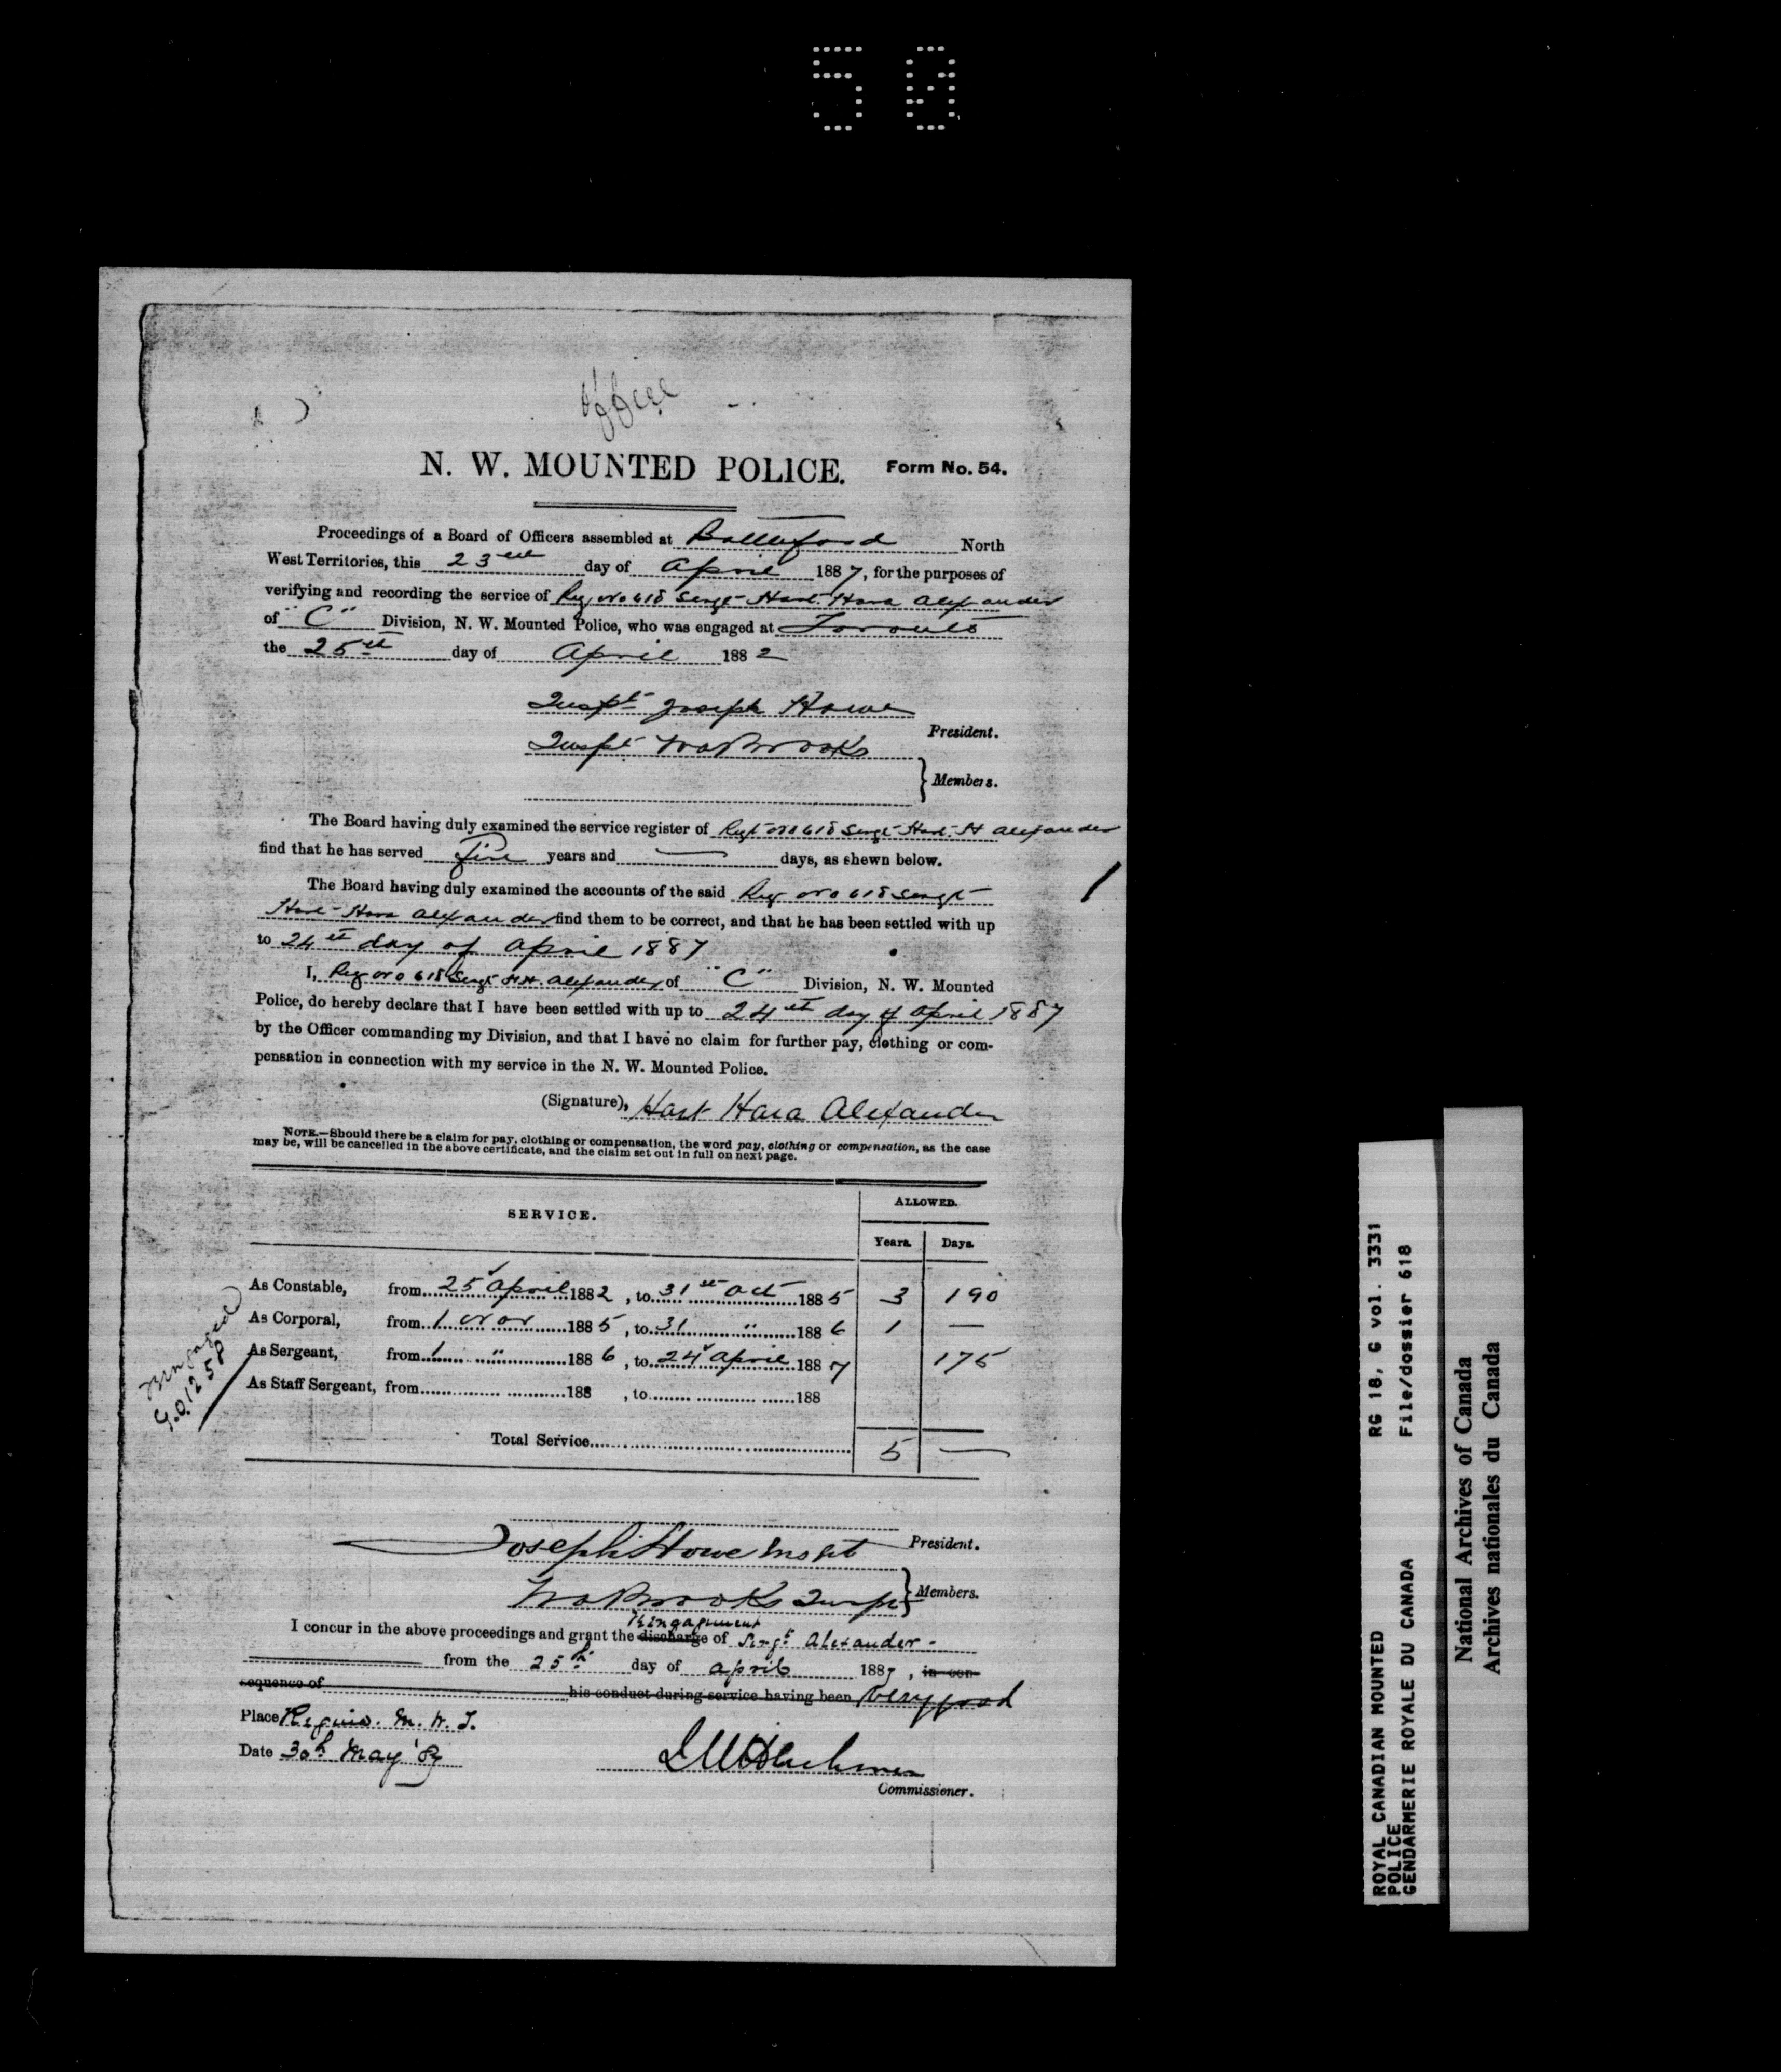 50
office
N. W. MOUNTED POLICE. Form No. 54.
Proceedings of a Board of Officers assembled at Battleford North
West Territories, this 23rd day of April 1887, for the purposes of
verifying and recording the service of Reg No 618 Sergt Hart Hara Alexander
of "C" Division, N. W. Mounted Police, who was engaged at Toronto
the 25th day of April 1882
Inspt Joseph Howe
President.
Inspt Wm Brooks
Members.
The Board having duly examined the service register of Regt No 618 Sergt Hart. H Alexander
find that he has served five years and — days, as shewn below.
The Board having duly examined the accounts of the said Reg No 618 Sergt
Hart Hara Alexander find them to be correct, and that he has been settled with up
to 24th day of April 1887
I, Reg No 618 Sergt H.H. Alexander of "C" Division, N. W. Mounted
Police, do hereby declare that I have been settled with up to 24th day of April 1887
by the Officer commanding my Division, and that I have no claim for further pay, clothing or com-
pensation in connection with my service in the N. W. Mounted Police.
(Signature), Hart Hara Alexander
NOTE.—Should there be a claim for pay, clothing or compensation, the word pay, clothing or compensation, as the case
may be, will be cancelled in the above certificate, and the claim set out in full on next page.
SERVICE. ALLOWED.
Years. Days.
As Constable, from 25 April 1882, to 31st Oct 1885 3 190
As Corporal, from 1 Nov 1885, to 31 " 1886 1 —
As Sergeant, from 1 " 1886, to 24 April 1887 175
As Staff Sergeant, from 188 , to 188
G.O. 1258
Total Service 5 —
Joseph Howe Inspt President.
Wm Brooks Inspt Members.
Reengagement
I concur in the above proceedings and grant the discharge of Sergt Alexander -
from the 25th day of April 1887, in con-
sequence of his conduct during service having been Very good
Place Regina. N. W. T.
Date 30th May '87
Commissioner.
ROYAL CANADIAN MOUNTED RG 18, G vol. 3331
POLICE File/dossier 618
GENDARMERIE ROYALE DU CANADA
National Archives of Canada
Archives nationales du Canada